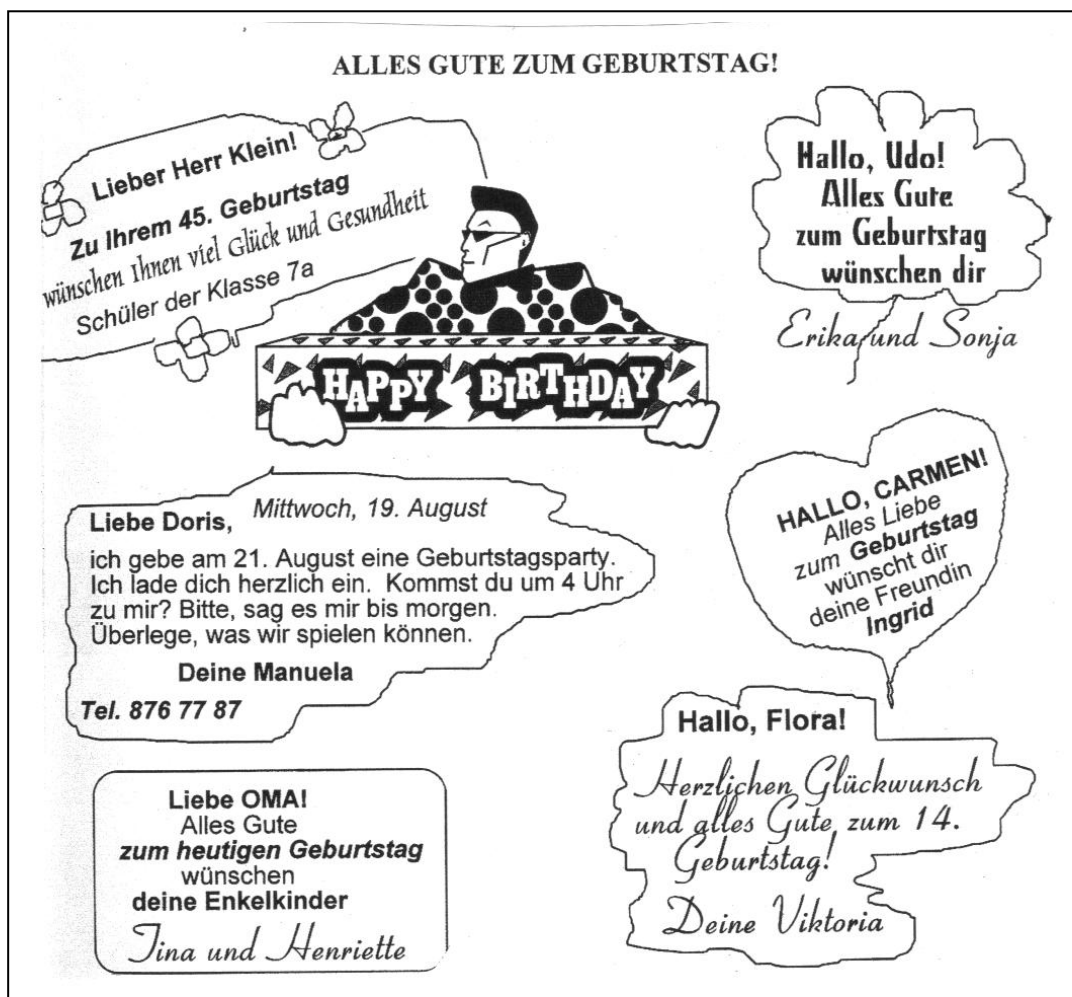 ALLES GUTE ZUM GEBURTSTAG!
Lieber Herr Klein!
Zu Ihrem 45. Geburtstag
wünschen Ihnen viel Glück und Gesundheit
Schüler der Klasse 7a
Hallo, Udo!
Alles Gute
zum Geburtstag
wünschen dir
Erika und Sonja
HAPPY BIRTHDAY
Liebe Doris, Mittwoch, 19. August
ich gebe am 21. August eine Geburtstagsparty.
Ich lade dich herzlich ein. Kommst du um 4 Uhr
zu mir? Bitte, sag es mir bis morgen.
Überlege, was wir spielen können.
Deine Manuela
Tel. 876 77 87
HALLO, CARMEN!
Alles Liebe
zum Geburtstag
wünscht dir
deine Freundin
Ingrid
Liebe OMA!
Alles Gute
zum heutigen Geburtstag
wünschen
deine Enkelkinder
Tina und Henriette
Hallo, Flora!
Herzlichen Glückwunsch
und alles Gute zum 14.
Geburtstag!
Deine Viktoria